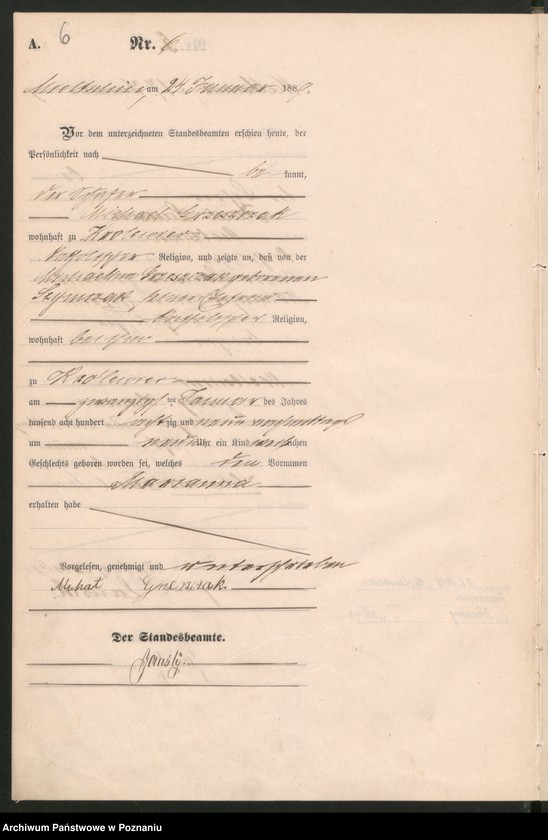 A. 6 Nr. 6
am 24. Januar 1889.
Vor dem unterzeichneten Standesbeamten erschien heute, der
Persönlichkeit nach
be kannt,
der Schäfer
Michael Grzesczak
wohnhaft zu
katholischer Religion, und zeigte an, daß von der
geborenen
seiner Ehefrau
katholischer Religion,
wohnhaft bei ihm
zu
am zwanzigsten Januar des Jahres
tausend acht hundert achtzig und neun vormittags
um neun Uhr ein Kind weiblichen
Geschlechts geboren worden sei, welches den Vornamen
Maryanna
erhalten habe
Vorgelesen, genehmigt und unterschrieben
Der Standesbeamte.
Archiwum Państwowe w Poznaniu